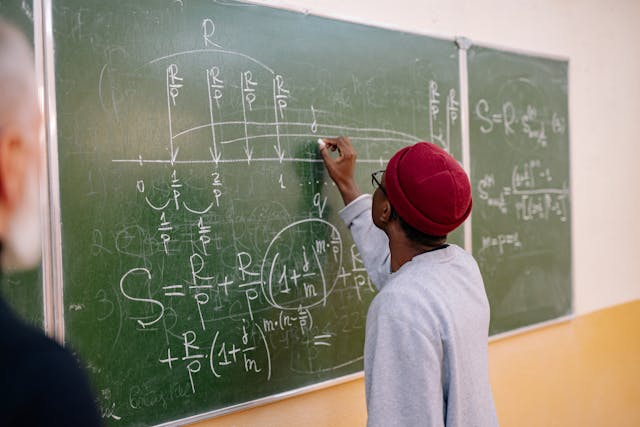 R
R/p R/p R/p R/p R/p R/p
j
0 1/p 2/p 1
1/p 1/p
q
S = R/p + R/p (1 + j/m)^(m·1/p) + R/p
+ R/p (1 + j/m)^(m·(n-1/p)) =
S = R · S
m = p = 1